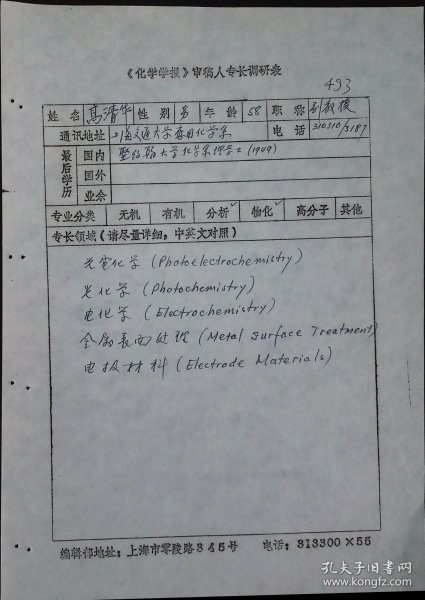 《化学学报》审稿人专长调研表
493
姓名 高清华 性别 男 年龄 58 职称 副教授
通讯地址 上海交通大学应用化学系 电话 310310/3187
最后学历 国内 圣约翰大学化学系理学士(1949)
国外
业余
专业分类 无机 有机 分析✓ 物化✓ 高分子 其他
专长领域(请尽量详细,中英文对照)
光電化学 (Photoelectrochemistry)
光化学 (Photochemistry)
电化学 (Electrochemistry)
金属表面处理 (Metal Surface Treatment)
电极材料 (Electrode Materials)
编辑部地址:上海市零陵路345号 电话:313300×55
孔夫子旧书网
www.kongfz.com